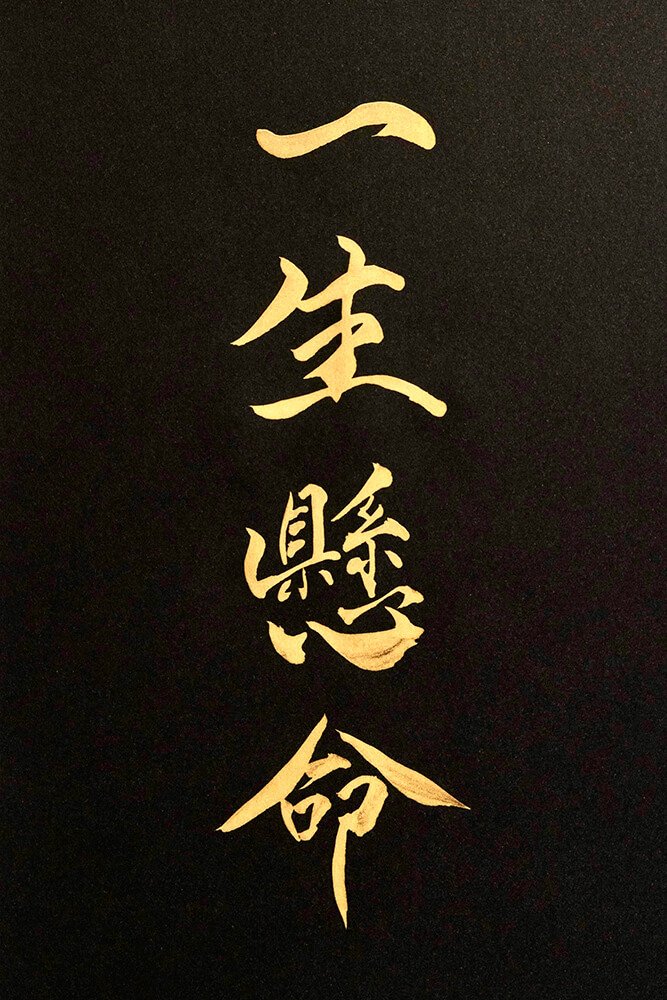 一生懸命